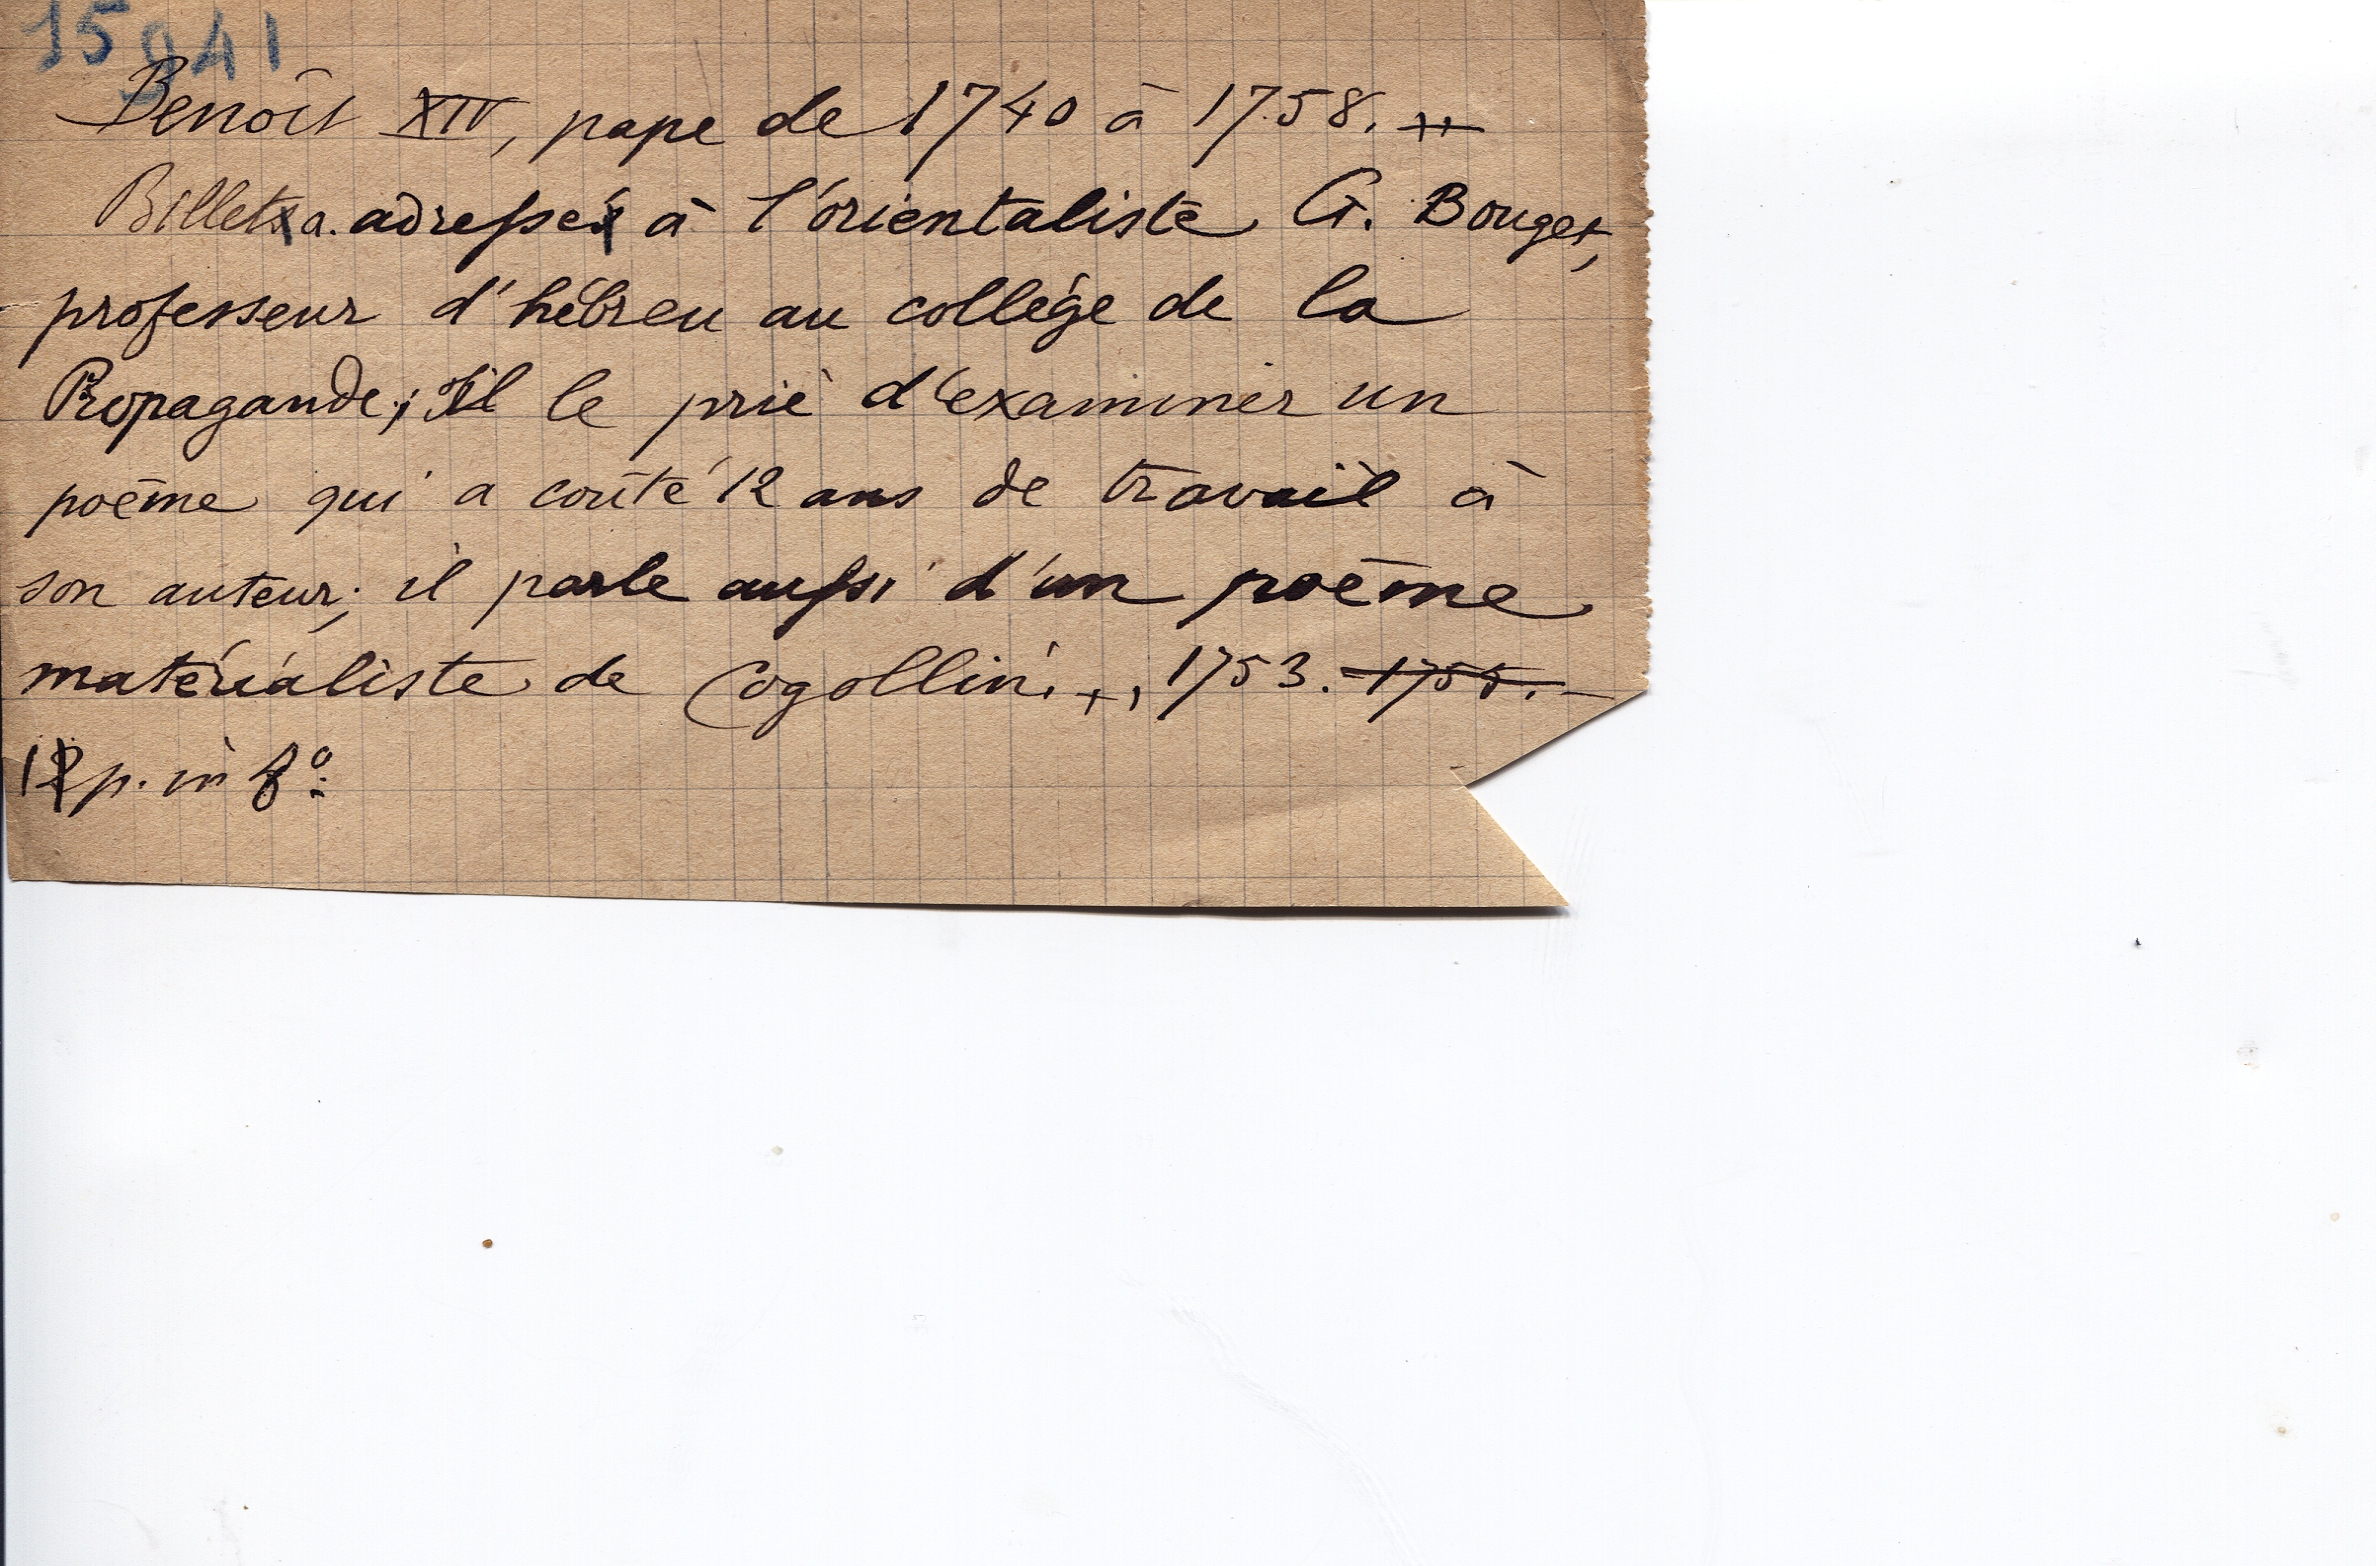 15941
Benoît XIV, pape de 1740 à 1758.
Billet a. adressé à l'orientaliste G. Bouget,
professeur d'hébreu au collège de la
Propagande; Il le prie d'examiner un
poème qui a coûté 12 ans de travail à
son auteur; il parle aussi d'un poème
matérialiste de Cogollini, 1753. 1755. —
1 p. in 8°.